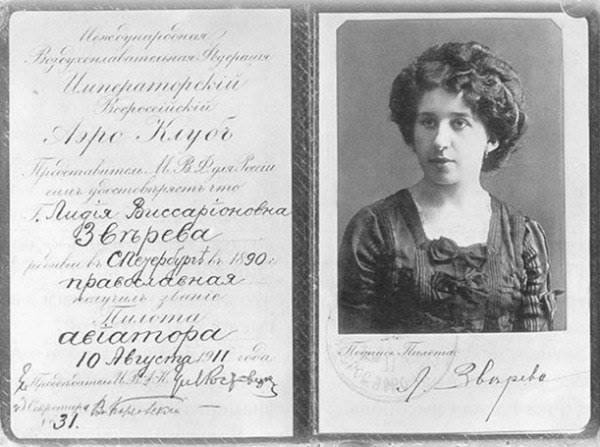 Международная
Воздухоплавательная Федерація
Императорскій
Всероссійскій
Аэро Клубъ
Представитель М. В. Ф. для Россіи
симъ удостовѣряетъ что
Г. Лидія Виссаріоновна
Звѣрева
родивш въ С Петербургѣ въ 1890 г.
православная
получилъ званіе
Пилота
авіатора
10 Августа 1911 года
Предсѣдатель
Секретарь
31.
Подпись Пилота:
Л. Звѣрева